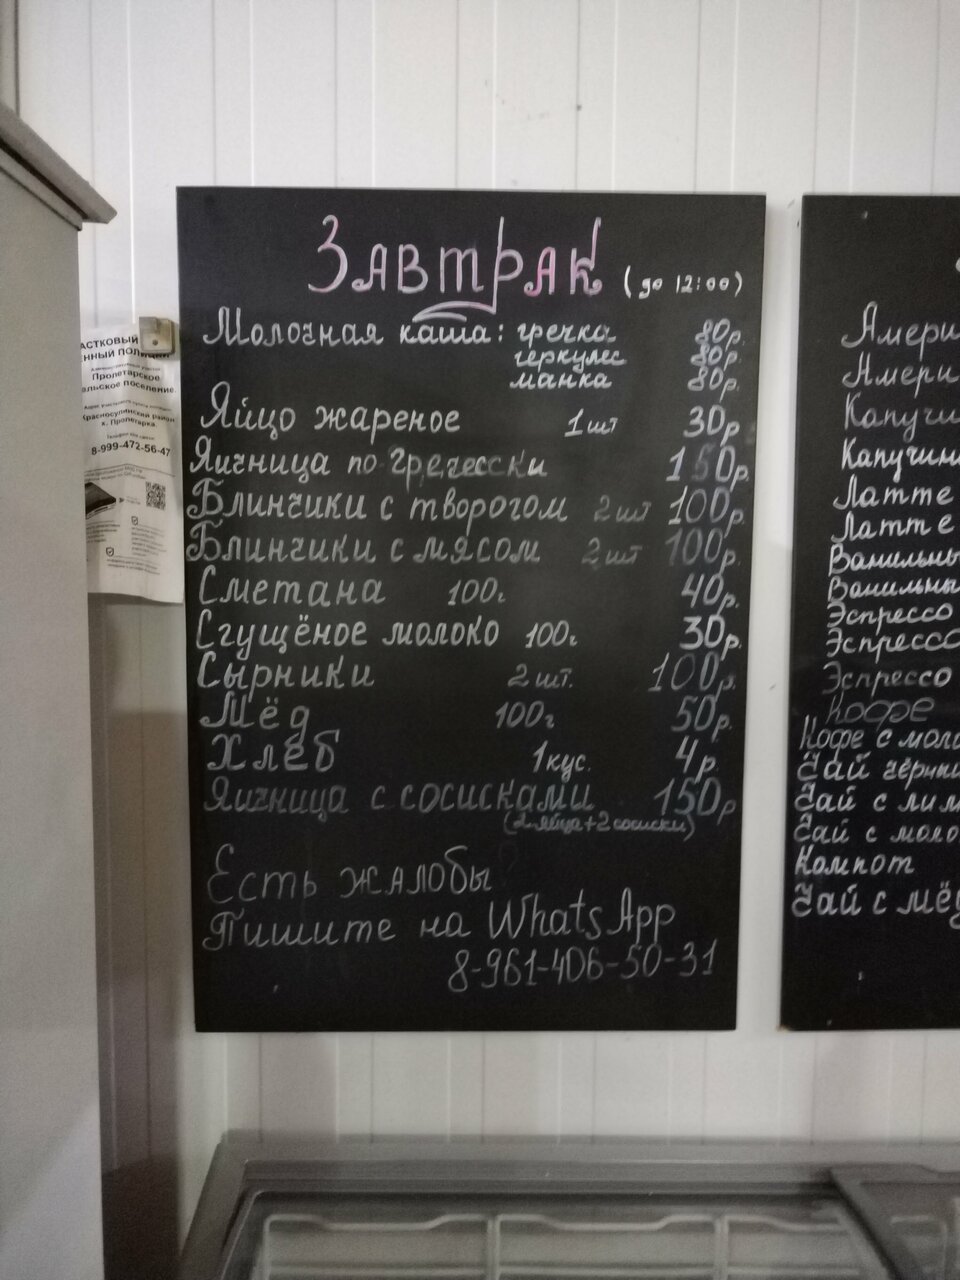 Завтрак (до 12:00)
Молочная каша: гречка 80р.
геркулес 80р.
манка 80р.
Яйцо жареное 1шт 30р
Яичница по гречесски 150р.
Блинчики с творогом 2шт 100р.
Блинчики с мясом 2шт 100р.
Сметана 100г 40р.
Сгущёное молоко 100г 30р.
Сырники 2шт. 100р.
Мёд 100г 50р.
Хлеб 1кус. 4р.
Яичница с сосисками 150р
(2 яйца+2 сосиски)
Есть жалобы
Пишите на WhatsApp
8-961-406-50-31
АСТКОВЫЙ
ННЫЙ ПОЛИЦИ
Пролетарское
льское поселение
Красносулинский район
х. Пролетарка.
8-999-472-56-47
Амери
Амери
Капучи
Капучин
Латте
Латте
Ванильны
Ванильны
Эспрессо
Эспрессо
Эспрессо
Кофе
Кофе с моло
Чай чёрны
Чай с лим
Чай с моло
Компот
Чай с мёд